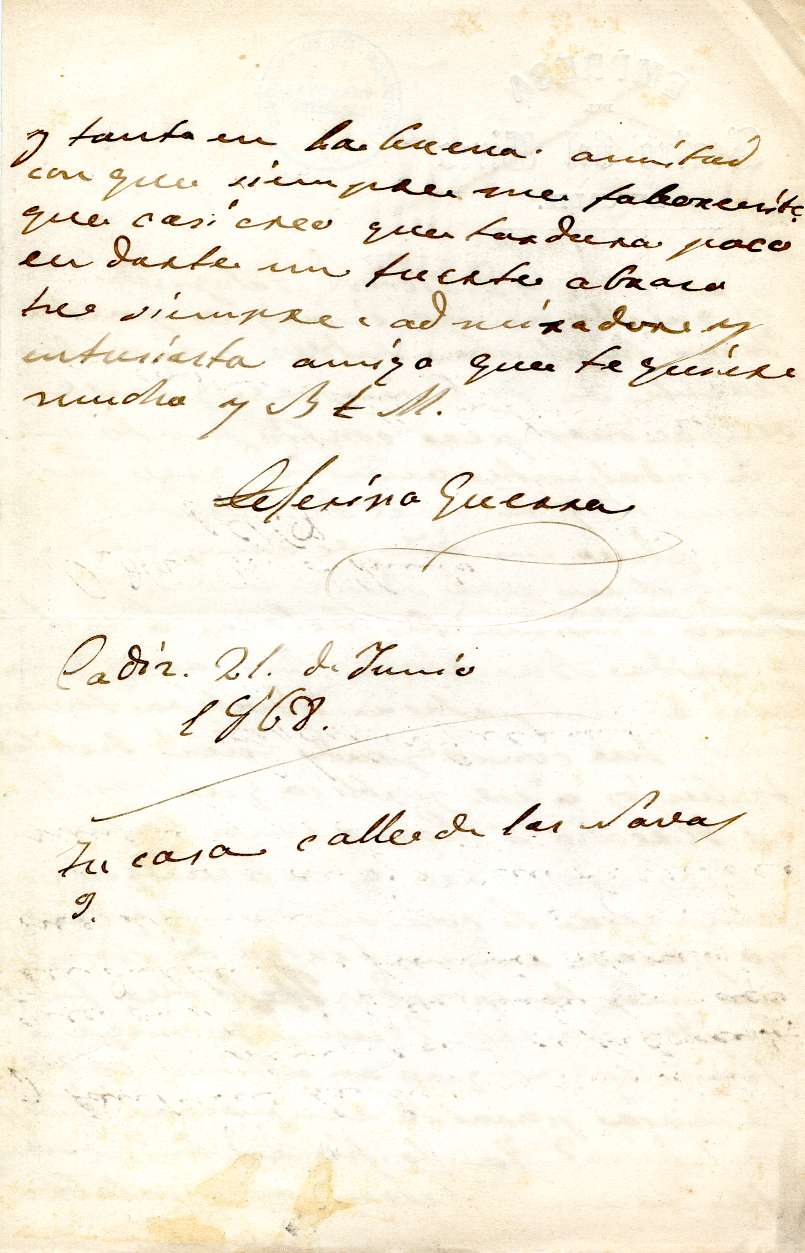 y tanta en la buena amistad
con que siempre me faboreciste
que casi creo que tardara poco
en darte un fuerte abraso
tu siempre admirador y
entusiasta amigo que te quiere
mucho y B t M.
Ceferino Guerra
Cadiz. 21. de Junio
1868.
tu casa calle de las Navas
9.